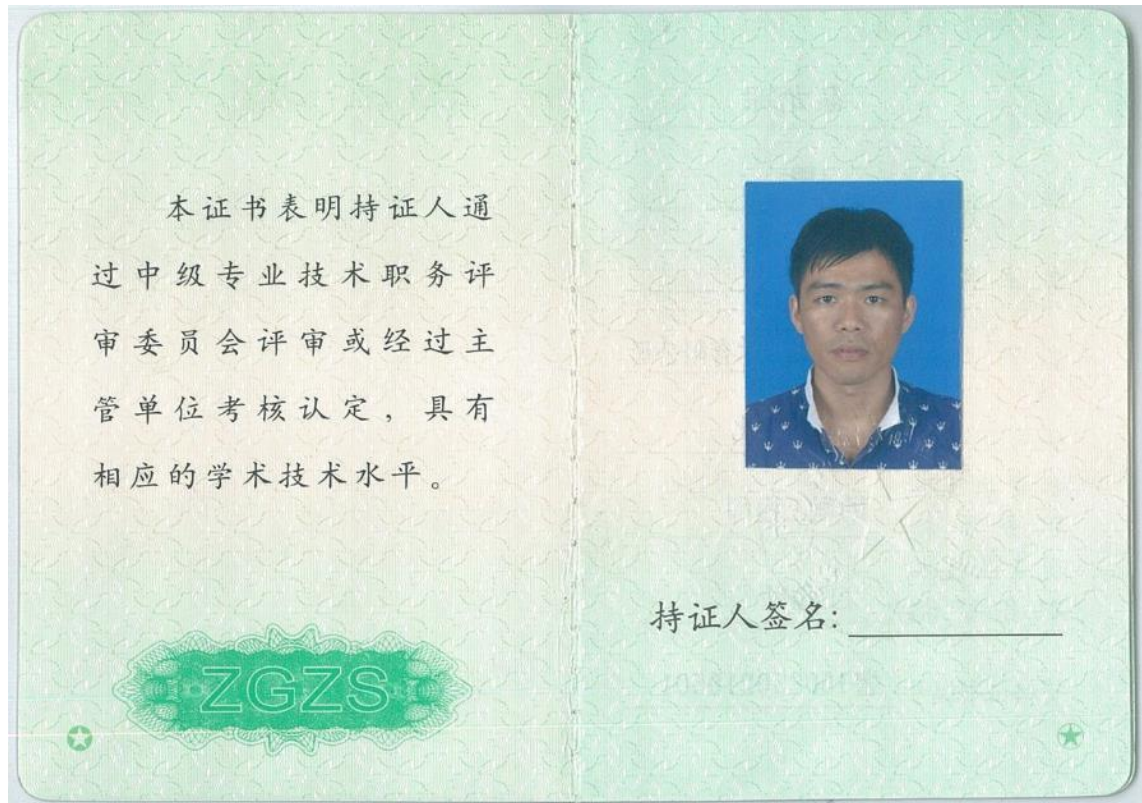 本证书表明持证人通
过中级专业技术职务评
审委员会评审或经过主
管单位考核认定，具有
相应的学术技术水平。
ZGZS
持证人签名: